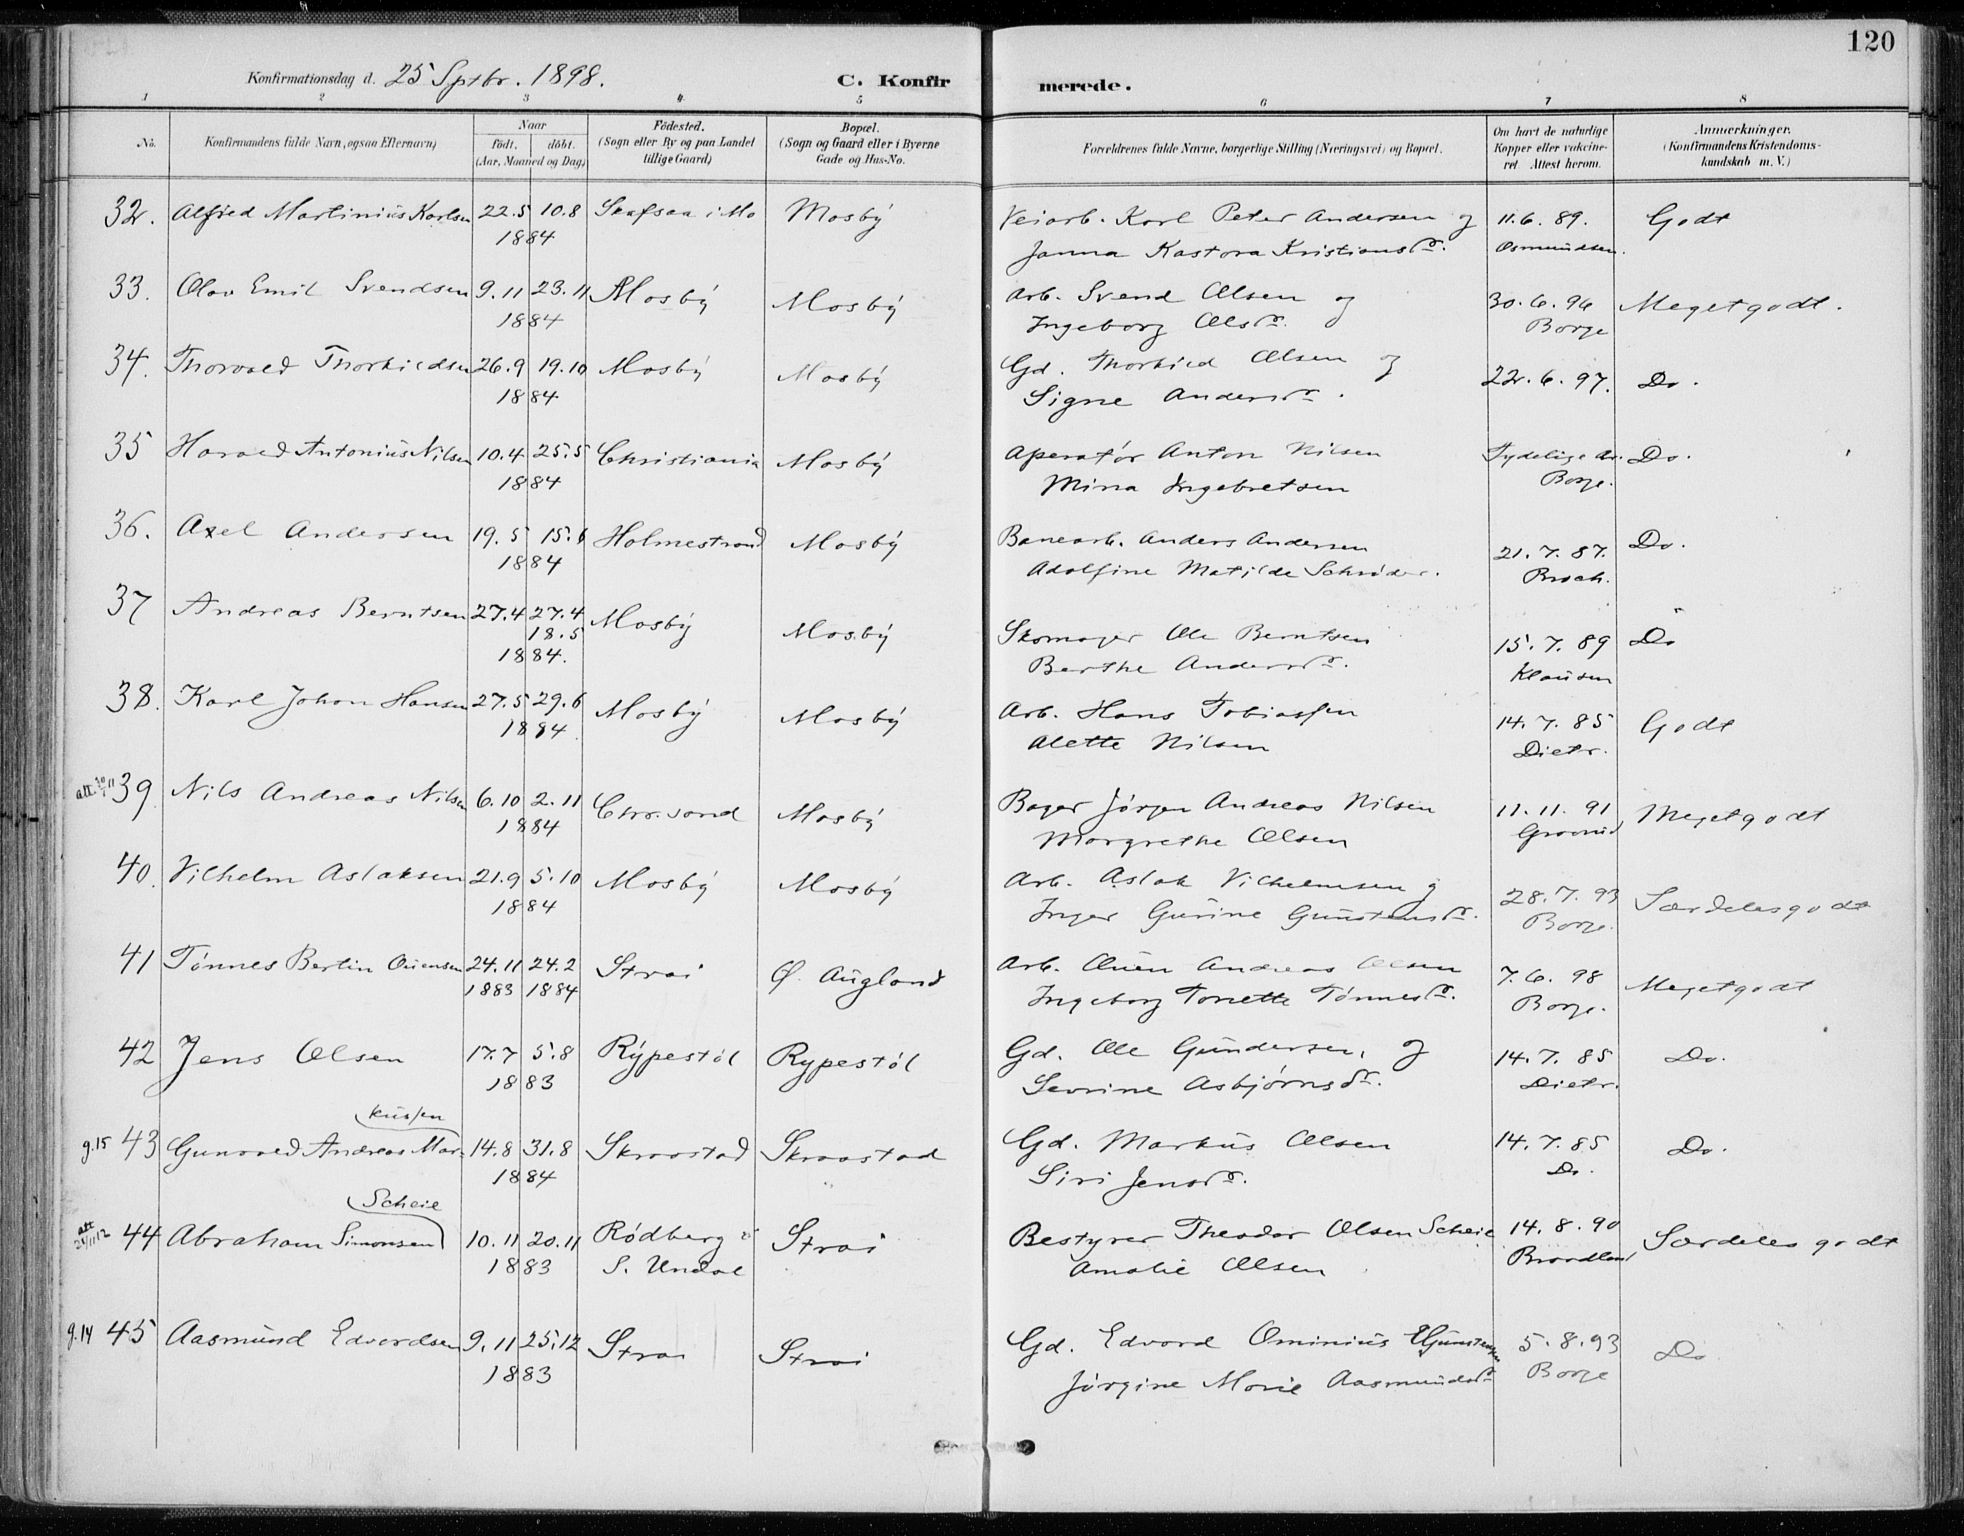 120
Konfirmationsdag d. 25 Septbr. 1898. C. Konfirmerede.
1 2 3 4 5 6 7 8
No. Konfirmandens fulde Navn, ogsaa Efternavn) Naar födt. döbt. (Aar, Maaned og Dag) Födested. (Sogn eller By og paa Landet tillige Gaard) Bopæl. (Sogn og Gaard eller i Byerne Gade og Hus-No. Forældrenes fulde Navne, borgerlige Stilling (Næringsvei) og Bopæl. Om havt de naturlige Kopper eller vakcineret. Attest herom. Anmærkninger. (Konfirmandens Kristendomskundskab m. V.)
32. Alfred Martinius Karlsen 22.5 10.8 Skafsaa i Mo Mosby Veiarb. Karl Peter Andersen og 11.6.89. Godt
1884 Janna Kastora Kristiansdr. Osmundsen.
33. Olav Emil Svendsen 9.11 23.11 Mosby Mosby Arb. Svend Olsen og 30.6.96 Megetgodt.
1884 Ingeborg Olsdr. Borge
34. Thorvald Thorkildsen 26.9 19.10 Mosby Mosby Gd. Thorkild Olsen og 22.6.97. Do.
1884 Signe Andersdr.
35 Harald Antonius Nilsen 10.4 25.5 Christiania Mosby Operatør Anton Nilsen Tydelige Ar. Do.
1884 Mina Ingebretsen Borge.
36. Axel Andersen 19.5 15.6 Holmestrand Mosby Banearb. Anders Andersen 21.7.87. Do.
1884 Adolfine Matilde Schrøder. Broch.
37 Andreas Berntsen 27.4 27.4 Mosby Mosby Skomager Ole Berntsen 15.7.89 Do
18.5
1884. Berthe Andersdr. Klausen
38. Karl Johan Hansen 27.5 29.6 Mosby Mosby Arb. Hans Tobiassen 14.7.85 Godt
1884. Alette Nilsen Dietr.
att. 39 Nils Andreas Nilsen 6.10 2.11 Chr.sand Mosby Bager Jørgen Andreas Nilsen 11.11.91 Megetgodt
1884 Margrethe Olsen
40. Vilhelm Aslaksen 21.9 5.10 Mosby Mosby Arb. Aslak Vilhelmsen og 28.7.93 Særdelesgodt
1884 Inger Gurine Gunstensdr. Borge.
41 Tønnes Bertin Ouensen 24.11 24.2 Strai Ø. Augland Arb. Ouen Andreas Olsen 7.6.98 Megetgodt
1883 1884 Ingeborg Tonette Tønnesdr. Borge.
42 Jens Olsen 17.7 5.8 Rypestøl Rypestøl Gd. Ole Gundersen, og 14.7.85 Do.
1883 Sevrine Asbjørnsdr. Dietr.
kussen
g.15 43 Gunvald Andreas Mar- 14.8 31.8 Skraastad Skraastad Gd. Markus Olsen 14.7.85 Do.
1884 Siri Jensdr. Do.
Scheie
att 44 Abraham Simonsen 10.11 20.11 Rødberg i Strai Bestyrer Theodor Olsen Scheie 14.8.90 Særdeles godt
1883 S. Undal Amalie Olsen
g.14 45 Aasmund Edvardsen 9.11 25.12 Strai Strai Gd. Edvard Ominius Gunstensen 5.8.93 Do
1883 Jørgine Marie Aasmundsdr Borge